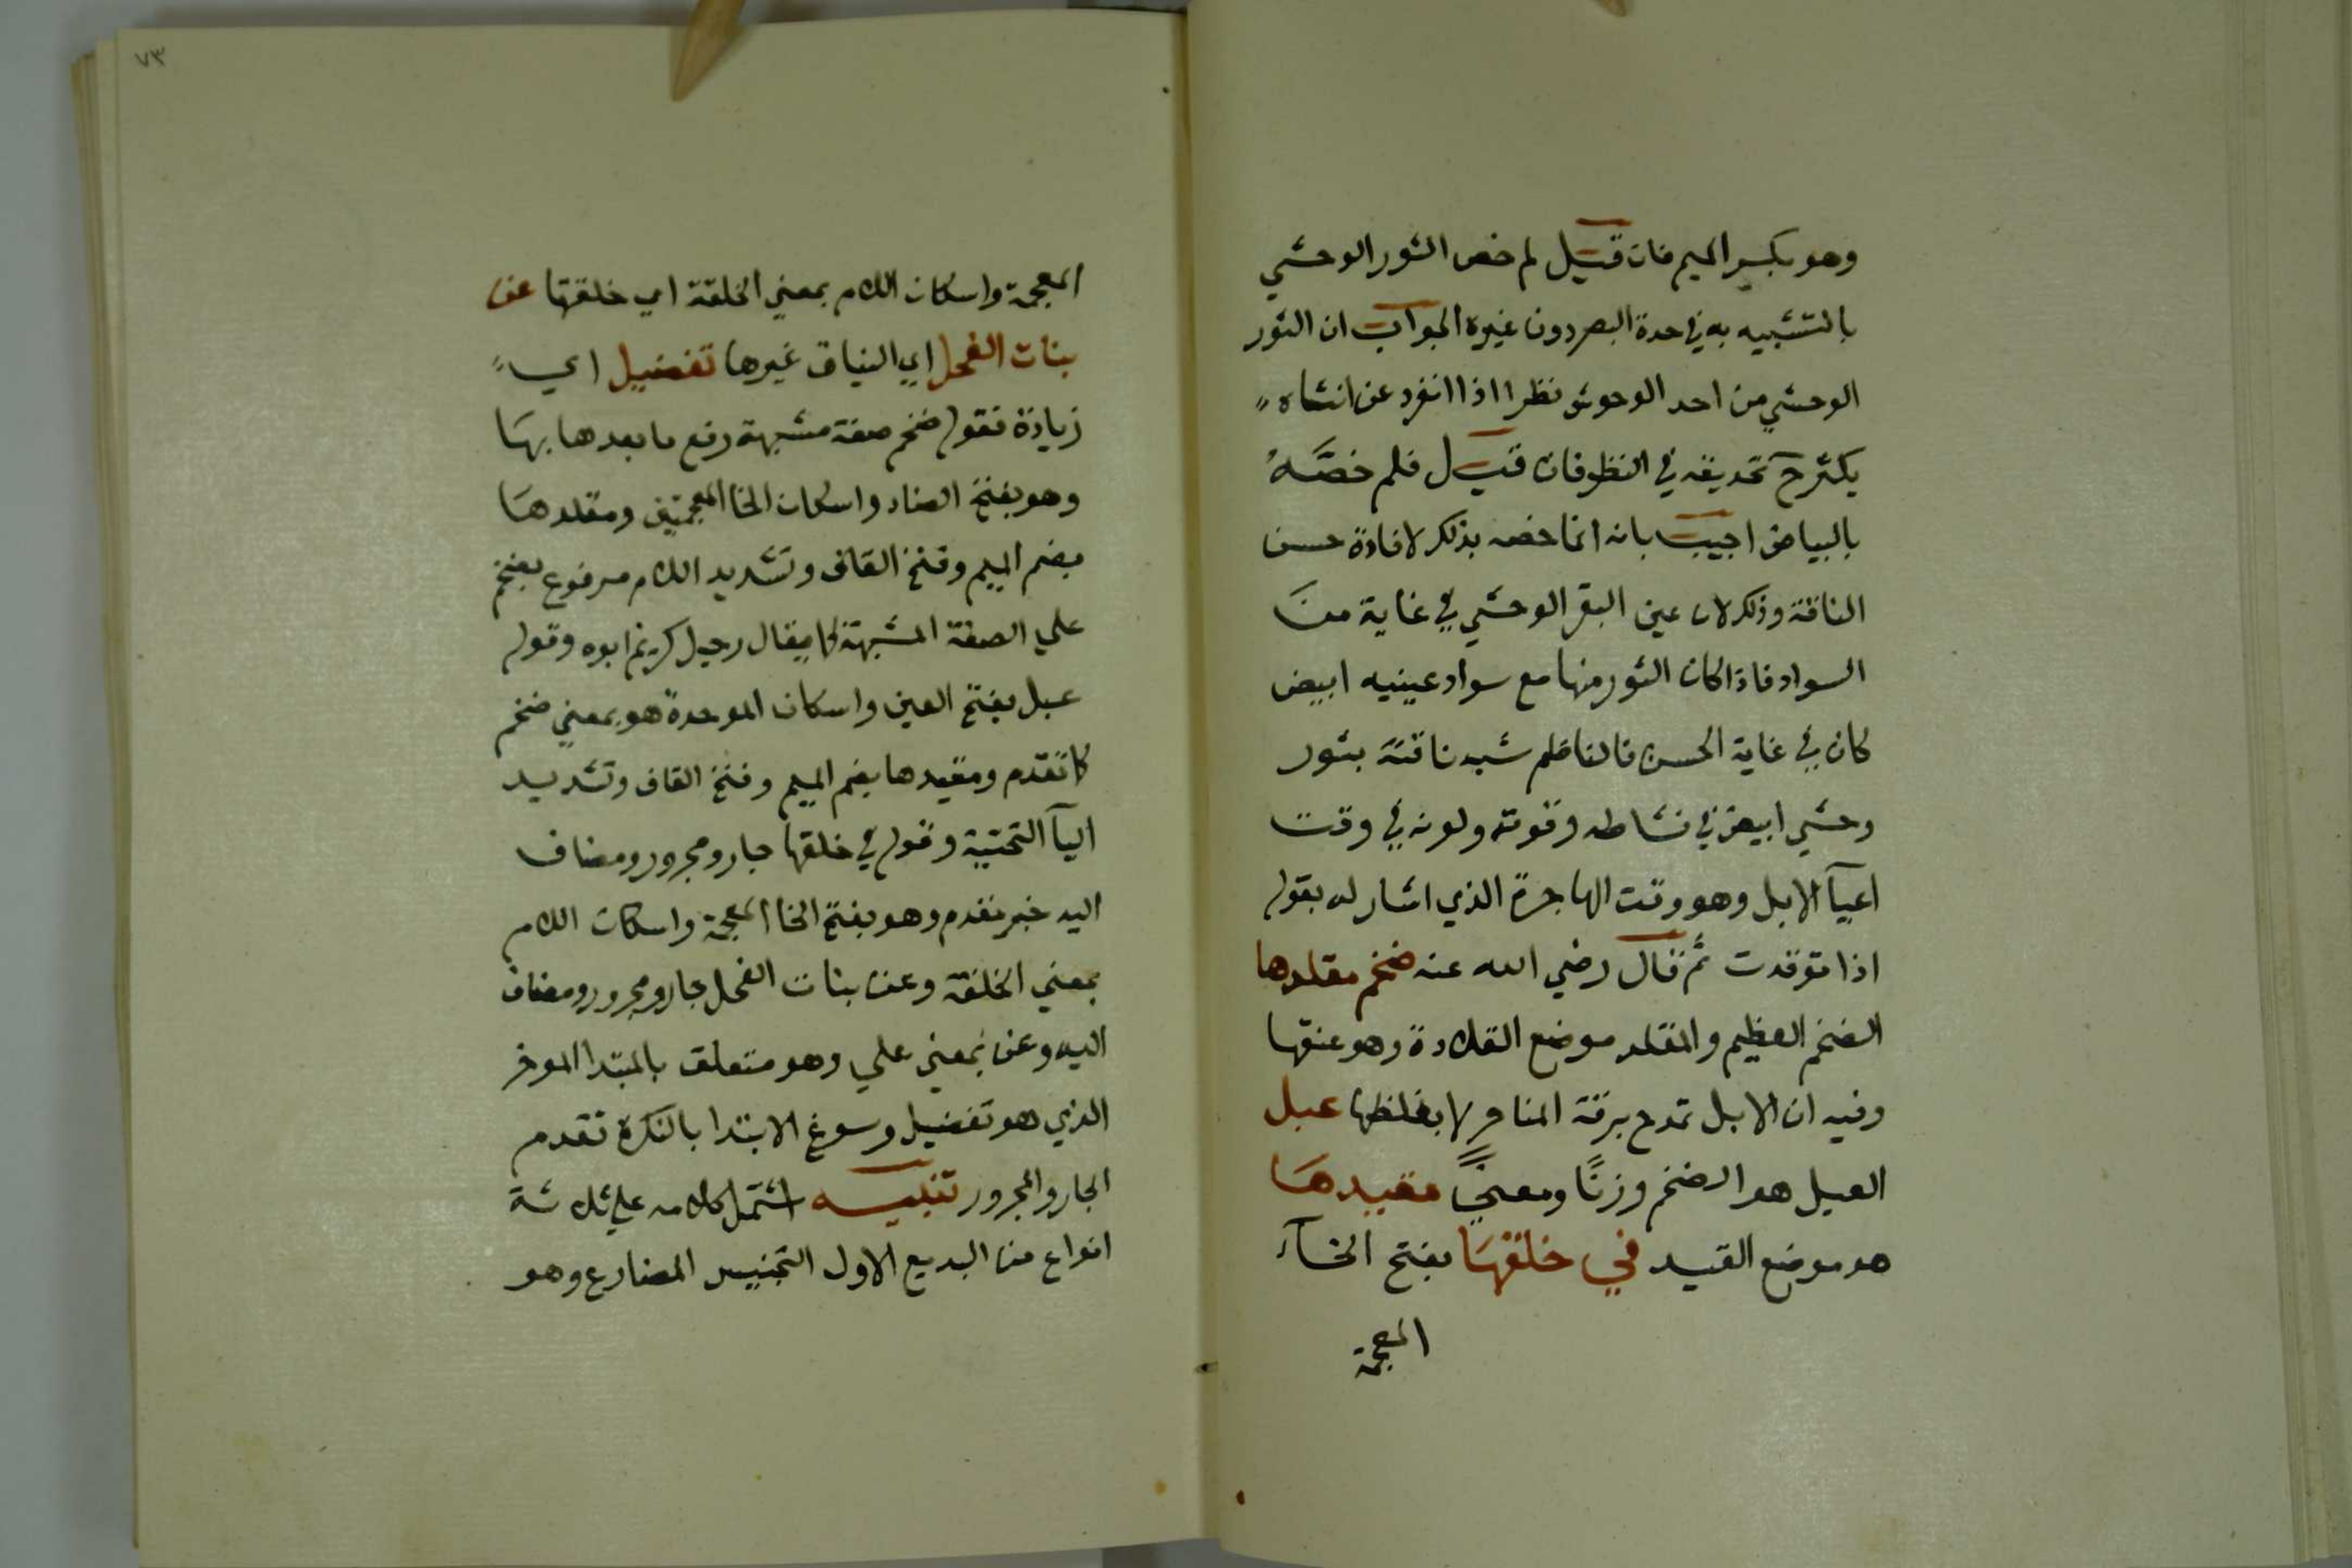 وهو بكسر الميم فان قيل لم خص الثور الوحشي
بالتشبيه به في حدة البصر دون غيره الجواب ان الثور
الوحشي من احد الوحوش نظرا اذا انفرد عن انثاه
يكثر ح تحديقه في النظر فان قيل فلم خصَّهُ
بالبياض اجيب بانه انما خصه بذلك لافادة حسن
الناقة وذلك لان عين البقر الوحشي في غاية من
السواد فاذا كان الثور منها مع سواد عينيه ابيض
كان في غاية الحسن فالناظم شبه ناقته بثور
وحشي ابيض في نشاطه وقوته ولونه في وقت
اعيآ الابل وهو وقت الهاجرة الذي اشار له بقوله
اذا توقدت ثم قال رضي الله عنه ضخم مقلدها
الضخم العظيم والمقلد موضع القلادة وهو عنقها
وفيه ان الابل تمدح برقة المناحر لا بغلظها عبل
العبل هو الضخم وزنًا ومعنيً مقيدها
هو موضع القيد في خلقها بفتح الخآء
المعجمة
٧٣
المعجمة واسكان اللام بمعني الخلقة اي خلقتها عن
بنات الفحل اي النياق غيرها تفضيل اي
زيادة فقوله ضخم صفة مشبهة رفع ما بعدها بها
وهو بفتح الضاد واسكان الخا المعجمتين ومقلدها
بضم الميم وفتح القاف وتشديد اللام مرفوع بضخم
علي الصفة المشبهة كما يقال رجل كريم ابوه وقوله
عبل بفتح العين واسكان الموحدة هو بمعني ضخم
كما تقدم ومقيدها بضم الميم وفتح القاف وتشديد
اليآ التحتية وقوله في خلقها جار ومجرور ومضاف
اليه خبر مقدم وهو بفتح الخا المعجمة واسكان اللام
بمعني الخلقة وعن بنات الفحل جار ومجرور ومضاف
اليه وعن بمعني علي وهو متعلق بالمبتدا الموخر
الذي هو تفضيل وسوغ الابتدا بالنكرة تقدم
الجار والمجرور تنبيه اشتمل كلامه علي ثلاثة
انواع من البديع الاول التجنيس المضارع وهو